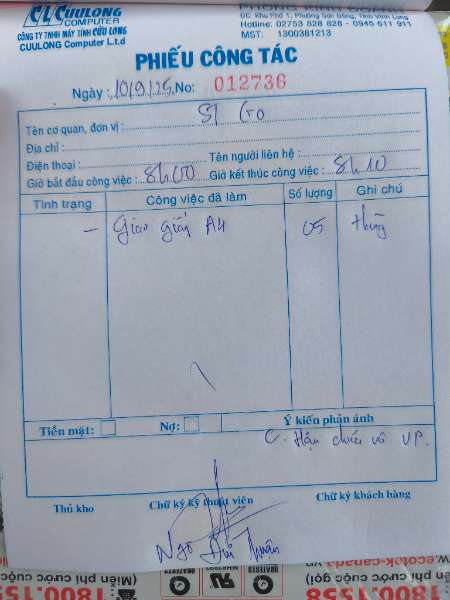 CL CUULONG
COMPUTER
CÔNG TY TNHH MÁY TÍNH CỬU LONG
CUULONG Computer L.t.d
ĐC: Khu Phố 1, Phường Sơn Đông, Tỉnh Vĩnh Long
Hotline: 02753 828 828 - 0945 611 911
MST: 1300381213
PHIẾU CÔNG TÁC
Ngày: 10/9/25, No: 012736
Tên cơ quan, đơn vị:
Địa chỉ:
Điện thoại: Tên người liên hệ:
Giờ bắt đầu công việc: 8h00 Giờ kết thúc công việc: 8h10
Tình trạng Công việc đã làm Số lượng Ghi chú
- Giao giấy A4 05 thùng
Tiền mặt: Nợ: Ý kiến phản ánh
C. Hậu VP.
Thủ kho Chữ ký kỹ thuật viên Chữ ký khách hàng
Ngô
(Miễn phí cước gọi)
1800.1558